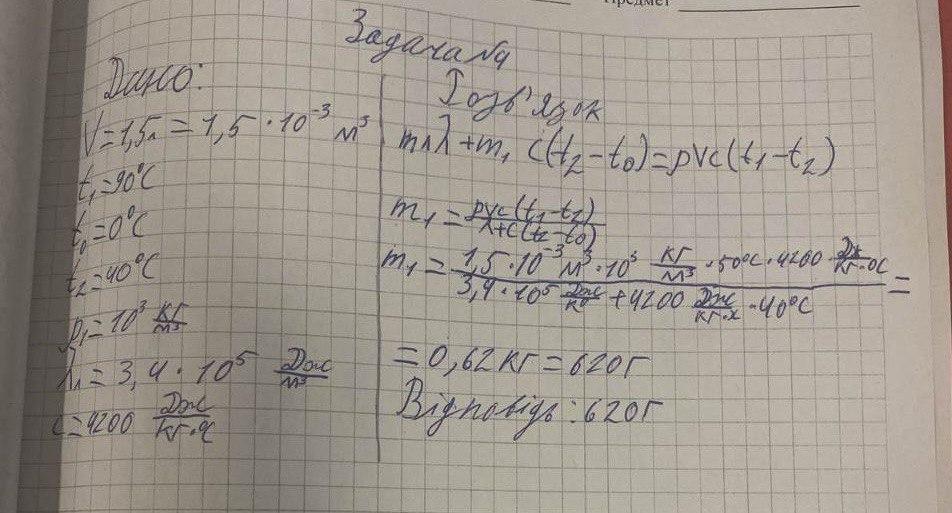 Предмет
Задача №4
Дано:
V=1,5л=1,5·10⁻³ м³
t₁=90°C
t₀=0°C
t₂=40°C
ρ₁=10³ кг/м³
λ₁=3,4·10⁵ Дж/м³
c=4200 Дж/кг·°C
Розв'язок
m₁λ+m₁c(t₂-t₀)=ρVc(t₁-t₂)
m₁=ρVc(t₁-t₂)/λ+c(t₂-t₀)
m₁=1,5·10⁻³м³·10³ кг/м³·50°C·4200 Дж/кг·°C / 3,4·10⁵ Дж/кг+4200 Дж/кг·°C·40°C =
=0,62кг=620г
Відповідь:620г